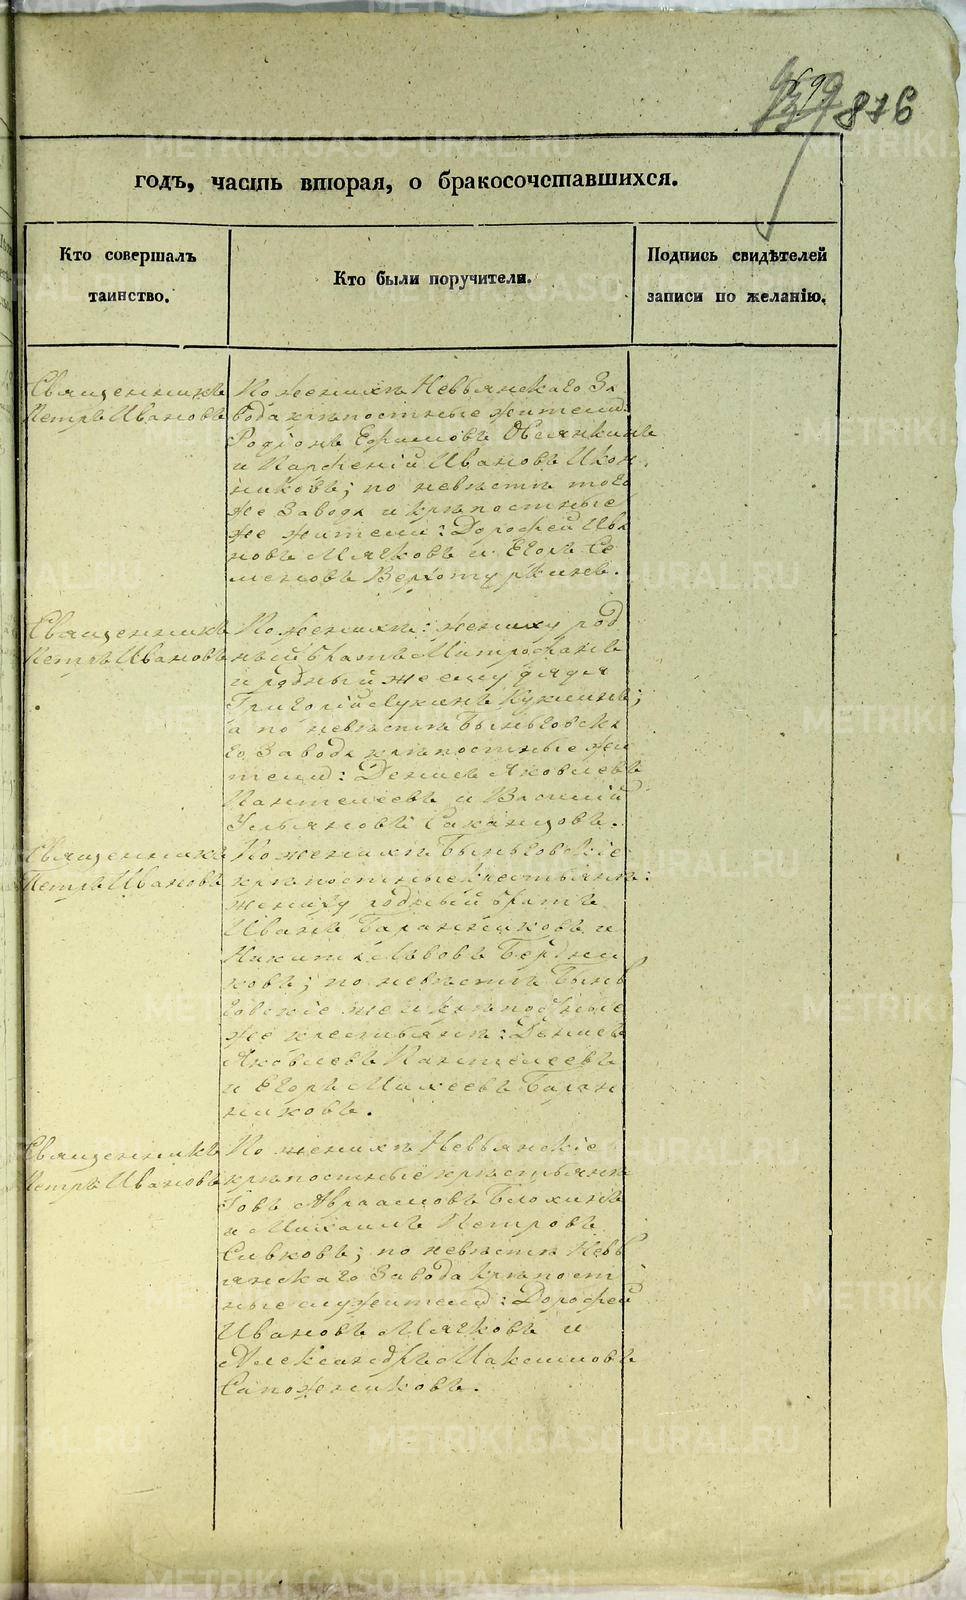 876
годъ, часть вторая, о бракосочетавшихся.
Кто совершалъ
таинство.
Кто были поручители.
Подпись свидѣтелей
записи по желанію.
Священникъ
Петръ Ивановъ
По женихѣ Невьянскаго За
вода крѣпостные жители:
Родіонъ Ефимовъ Овсянкинъ
и Парфеній Ивановъ Икон
никовъ; по невѣстѣ того
же Завода и крѣпостные
же жители: Дорофей Ива
новъ Мячковъ и Егоръ Се
меновъ Верхотуржинъ.
Священникъ
Петръ Ивановъ
По женихѣ: жениху род
ный братъ Митрофанъ
и родный же ему дядя
Григорій Лукинъ Кукшинъ;
а по невѣстѣ Быньговска
го Завода крѣпостные жи
тели: Денисъ Яковлевъ
Пантелеевъ и Василій
Ульяновъ Саканцовъ.
Священникъ
Петръ Ивановъ
По женихѣ Быньговскіе
крѣпостные крестьяне:
жениху родный братъ
Иванъ Баранниковъ и
Никита Львовъ Бердни
ковъ; по невѣстѣ Бынь
говскіе же и крѣпостные
же крестьяне: Денисъ
Яковлевъ Пантелеевъ
и Егоръ Михеевъ Баран
никовъ.
Священникъ
Петръ Ивановъ
По женихѣ Невьянскіе
крѣпостные крестьяне
Іовъ Авраамовъ Блохинъ
и Михаилъ Петровъ
Сивковъ; по невѣстѣ Невь
янскаго Завода крѣпост
ные служители: Дорофей
Ивановъ Мячковъ и
Александръ Максимовъ
Сапожниковъ.
METRIKI.GASO-URAL.RU